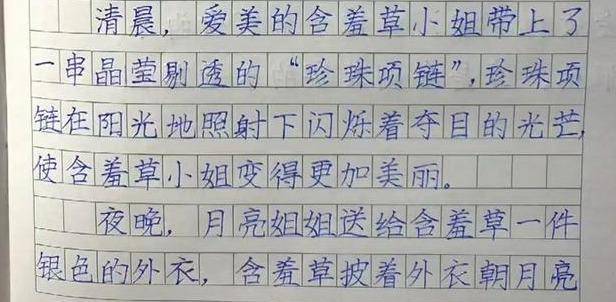 清晨，爱美的含羞草小姐带上了
一串晶莹剔透的“珍珠项链”，珍珠项
链在阳光地照射下闪烁着夺目的光芒，
使含羞草小姐变得更加美丽。
夜晚，月亮姐姐送给含羞草一件
银色的外衣，含羞草披着外衣朝月亮